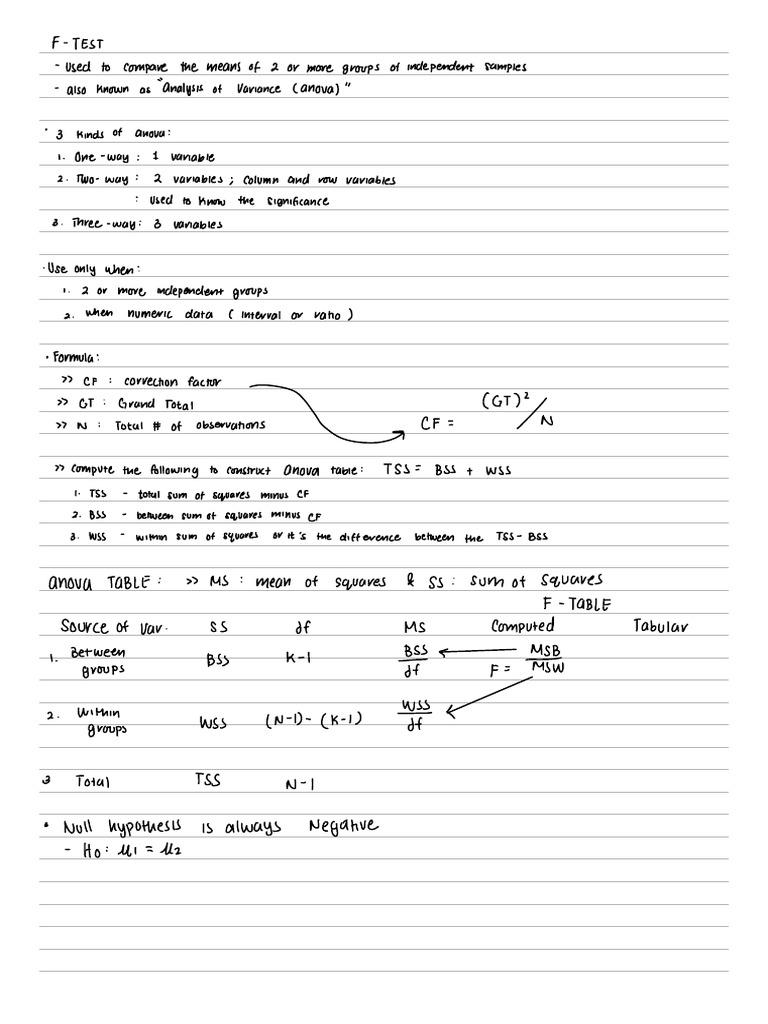 F - TEST
- Used to compare the means of 2 or more groups of independent samples
- also known as "Analysis of Variance (anova)"
• 3 kinds of anova:
1. One-way : 1 variable
2. Two-way : 2 variables ; column and row variables
: used to know the significance
3. Three-way: 3 variables
• Use only when:
1. 2 or more independent groups
2. when numeric data ( interval or ratio )
• Formula:
>> CF : correction factor
>> GT : Grand Total
>> N : Total # of observations
CF = (GT)² / N
>> compute the following to construct anova table: TSS = BSS + WSS
1. TSS - total sum of squares minus CF
2. BSS - between sum of squares minus CF
3. WSS - within sum of squares or it's the difference between the TSS - BSS
anova TABLE : >> MS : mean of squares & SS : sum of squares
F - TABLE
Source of Var. SS df MS Computed Tabular
1. Between groups BSS K-1 BSS/df F = MSB/MSW
2. Within groups WSS (N-1) - (K-1) WSS/df
3 Total TSS N-1
• Null hypothesis is always Negative
- Ho : µ1 = µ2